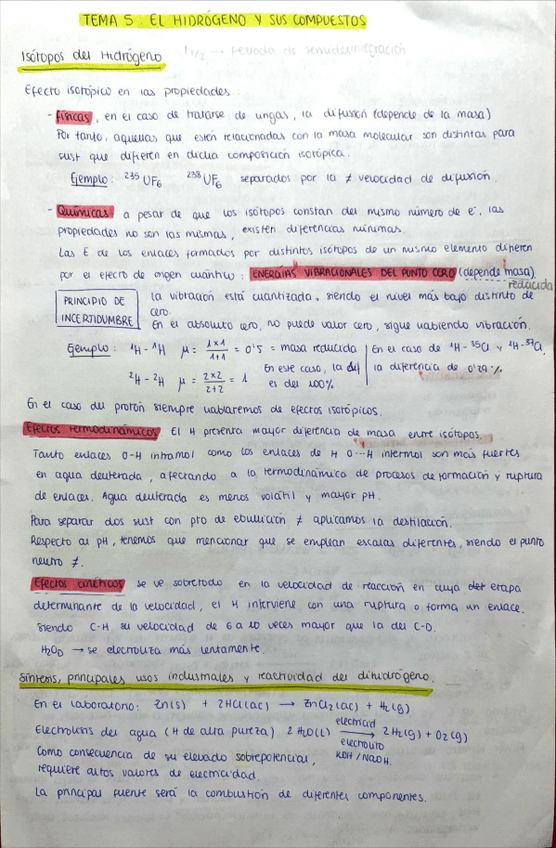 TEMA 5: EL HIDRÓGENO Y SUS COMPUESTOS
Isótopos del Hidrógeno t1/2 → Periodo de semidesintegración
Efecto isotópico en las propiedades:
- Físicas, en el caso de tratarse de un gas, la difusión (depende de la masa)
Por tanto, aquellas que estén relacionadas con la masa molecular son distintas para
sust que difieren en dicha composición isotópica.
Ejemplo: ²³⁵UF₆ ²³⁸UF₆ separados por la ≠ velocidad de difusión.
- Químicas a pesar de que los isótopos constan del mismo número de e⁻, las
propiedades no son las mismas, existen diferencias mínimas.
Las E de los enlaces formados por distintos isótopos de un mismo elemento difieren
por el efecto de origen cuántico: ENERGÍAS VIBRACIONALES DEL PUNTO CERO (depende masa)
reducida
PRINCIPIO DE INCERTIDUMBRE
La vibración está cuantizada, siendo el nivel más bajo distinto de
cero.
En el absoluto cero, no puede valor cero, sigue habiendo vibración.
Ejemplo: ¹H-¹H μ = 1x1/1+1 = 0'5 = masa reducida
²H-²H μ = 2x2/2+2 = 1
En este caso, la dif
es del 100%
En el caso de ¹H-³⁵Cl y ¹H-³⁷Cl,
la diferencia de 0'29%
En el caso del protón siempre hablaremos de efectos isotópicos.
Efectos termodinámicos El H presenta mayor diferencia de masa entre isótopos.
Tanto enlaces O-H intramol como los enlaces de H O···H intermol son más fuertes
en agua deuterada, afectando a la termodinámica de procesos de formación y ruptura
de enlaces. Agua deuterada es menos volátil y mayor pH.
Para separar dos sust con pto de ebullición ≠ aplicamos la destilación.
Respecto al pH, tenemos que mencionar que se emplean escalas diferentes, siendo el punto
neutro ≠.
Efectos cinéticos se ve sobretodo en la velocidad de reacción en cuya etapa
determinante de la velocidad, el H interviene con una ruptura o forma un enlace.
Siendo C-H su velocidad de 6 a 10 veces mayor que la del C-D.
H₂O → se electroliza más lentamente.
Síntesis, principales usos industriales y reactividad del dihidrógeno.
En el laboratorio: Zn(s) + 2HCl(ac) → ZnCl₂(ac) + H₂(g)
Electrolisis del agua (H de alta pureza) 2 H₂O(l) → 2H₂(g) + O₂(g)
electricid
electrolito
KOH/NaOH.
Como consecuencia de su elevado sobrepotencial,
requiere altos valores de electricidad.
La principal fuente será la combustión de diferentes componentes.